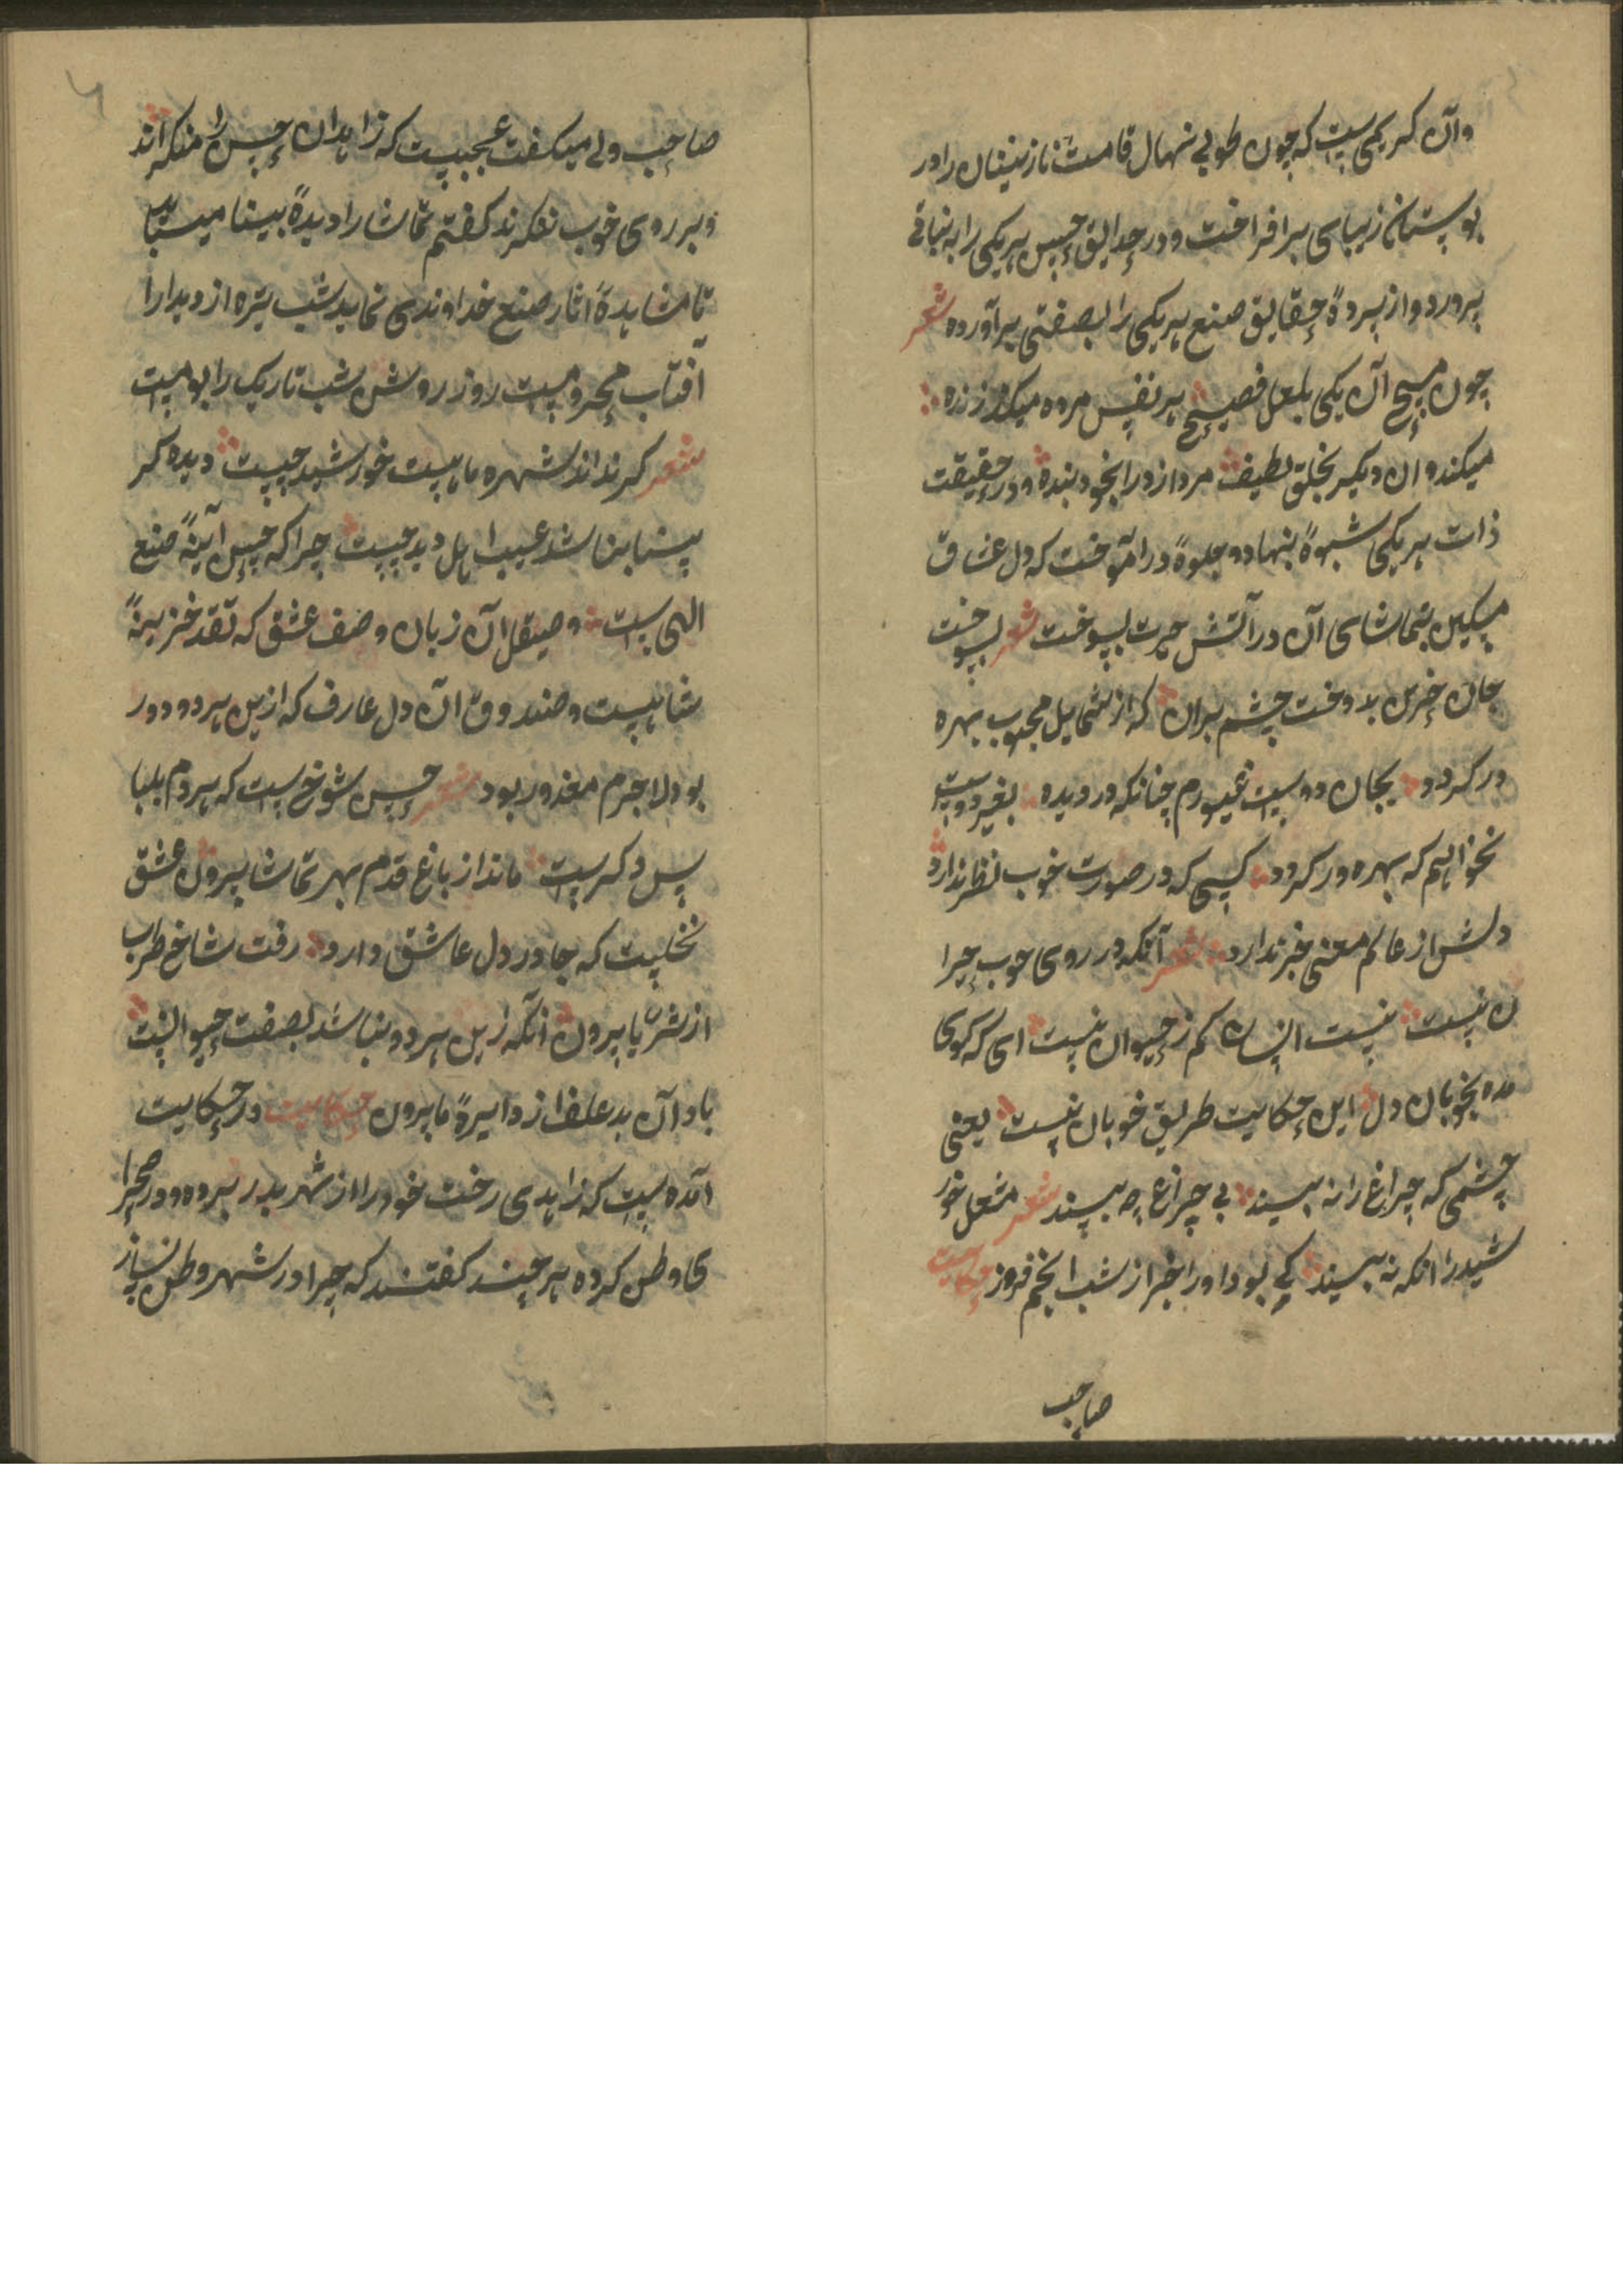 وآن کریمی ست که چون طوبی نهال قامت نازنینان را در
بوستان زیبای برافراخت و در حدایق حسن هریکی را به نباتی
پرورد و از پردهٔ حقایق صنع هریکی را بصفتی برآورده شعر
چون مسیح آن یکی بلعل فصیح هر نفس مرده میکند زنده
میکند و ان دیکر بخلق لطیف مرد ازاد را بخود بنده و در حقیقت
ذات هریکی شیوهٔ بنهاد و جلوهٔ در آموخت که دل عشاق
مسکین بتماشای آن در آتش حیرت بسوخت شعر بسوخت
جان حزین بدوخت چشم بران که از شمایل محبوب بهره
ور کردد بجان دوست غیورم چنانکه در دیده بغیر دوست
نخواهم که بهره ور کردد کسی که در صورت خوب نظر ندارد
دلش از عالم معنی خبر ندارد شعر آنکه در روی خوب حیرا
ن نیست نیست انسان کم ز حیوان نیست ای که کوی
مده بخوبان دل این حکایت طریق خوبان نیست یعنی
چشمی که چراغ را نه بیند بی چراغ چه بیند شعر مشعل خور
شید را انکه نه بیند کی بود او را خبر از شب انجم فروز حکایت
صاحب
صاحب ولی میکفت عجبیست که زاهدان حسن را منکر اند
و بر روی خوب ننکرند کفتم تماشا را دیدهٔ بینا میباید
تا مشاهدهٔ اثار صنع خداوندی نماید شب تیره از دیدار
آفتاب محروم ست روز روشن شب تاریک را بوم ست
شعر کر نداند شهره ماهیست خورشید چیست دیده کر
بینا نباشد عیب اهل دید چیست چرا که حسن آینهٔ صنع
الهی ست و صیقل آن زبان وصف عشق که نقد خزینهٔ
شاهیست و صندوق آن دل عارف که ازین هر دو دور
بود لاجرم معذور بود شعر حسن شوخ ست که هر دم بلبا
س دکر ست ماند از باغ قدم بهر تماشا بیرون عشق
نخلیست که جا در دل عاشق دارد رفت شاخ طرب
از ثریا بیرون انکه زین هر دو نباشد بصفت حیوانیت
باد آن بد علف از دایرهٔ ما بیرون حکایت در حکایت
آمده ست که زاهدی رخت خود را از شهر بدر برده و در صحرا
ی وطن کرده هر چند کفتند که چرا در شهر وطن نساز